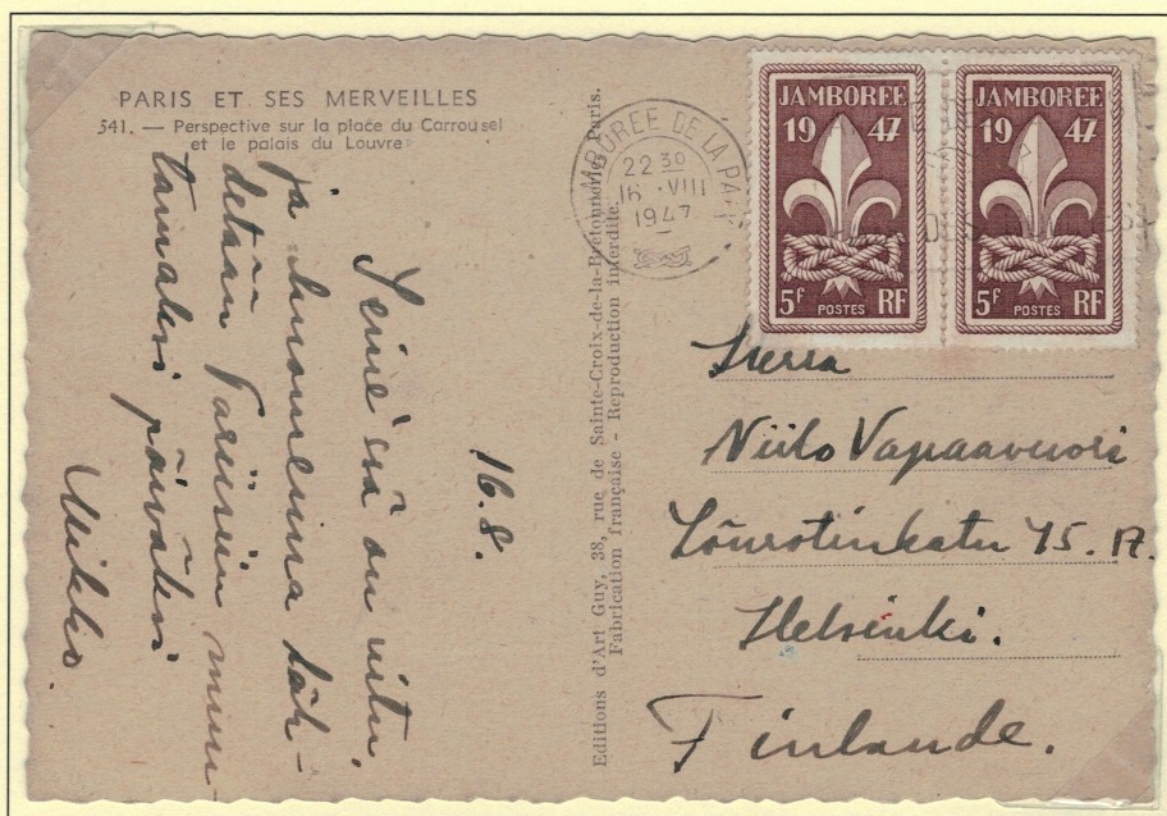 PARIS ET SES MERVEILLES
541. — Perspective sur la place du Carrousel
et le palais du Louvre
16.8.
on uitu,
ja huomenna läh-
detään Pariisiin muu-
tamaksi päiväksi
Mikko.
Editions d'Art Guy, 38, rue de Sainte-Croix-de-la-Bretonnerie, Paris.
Fabrication française - Reproduction interdite.
JAMBOREE DE LA PAIX
22 30
16 VIII
1947
JAMBOREE
1947
5F POSTES RF
JAMBOREE
1947
5F POSTES RF
Herra
Niilo Vapaavuori
Lönnrotinkatu 45.
Helsinki.
Finlande.